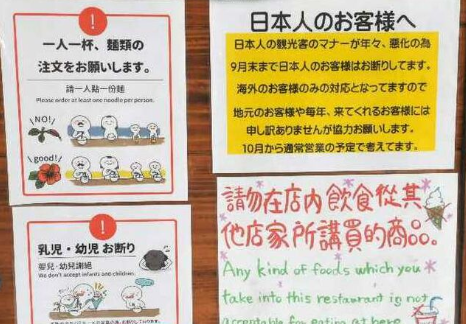 一人一杯、麺類の
注文をお願いします。
請一人點一份麵
Please order at least one noodle per person.
NO!
good!
乳児・幼児 お断り
嬰兒·幼兒謝絕
We don't accept infants and children.
日本人のお客様へ
日本人の観光客のマナーが年々、悪化の為
9月末まで日本人のお客様はお断りしてます。
海外のお客様のみの対応となってますので
地元のお客様や毎年、来てくれるお客様には
申し訳ありませんが協力お願いします。
10月から通常営業の予定で考えてます。
請勿在店内飲食從其
他店家所購買的商品。
Any kind of foods which you
take into this restaurant is not
acceptable for eating at here